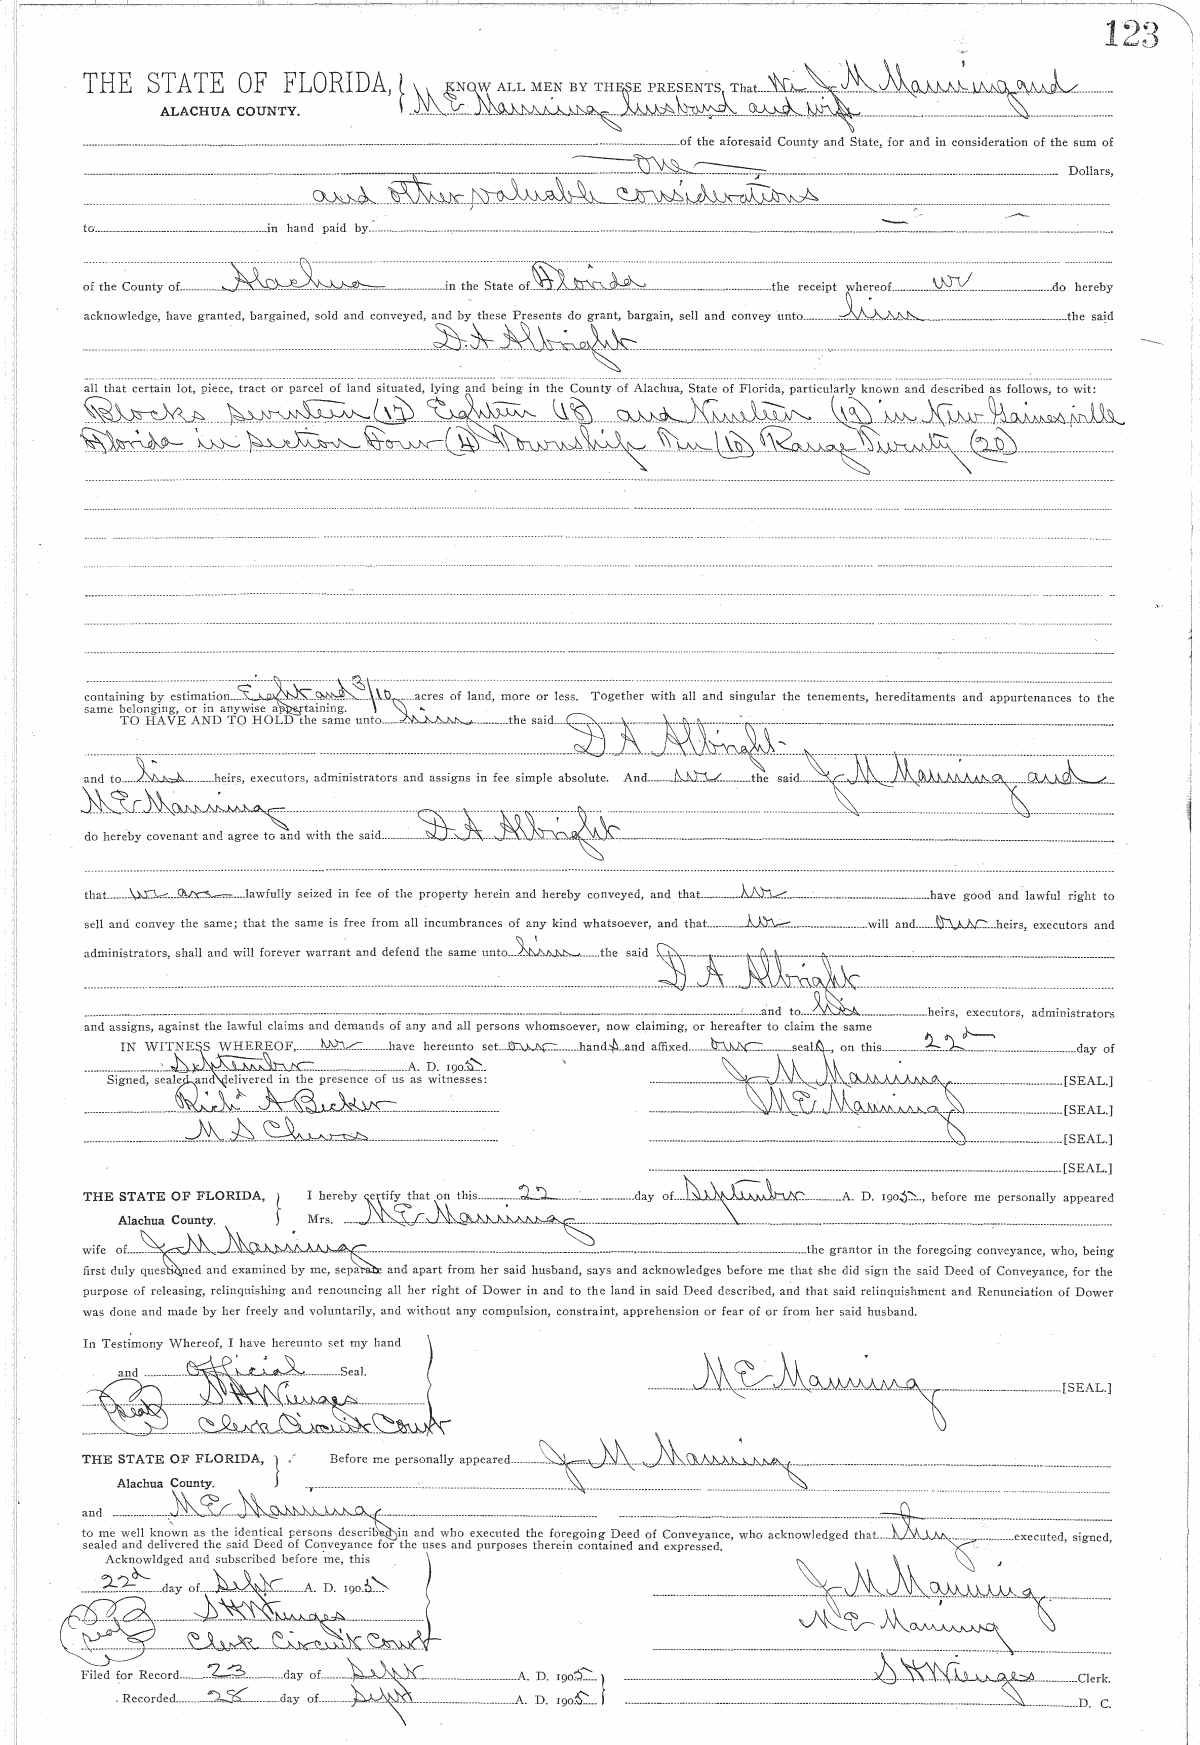 123
THE STATE OF FLORIDA, KNOW ALL MEN BY THESE PRESENTS, That We J M Manning and
ALACHUA COUNTY. M E Manning husband and wife
of the aforesaid County and State, for and in consideration of the sum of
One Dollars,
and other valuable considerations
to in hand paid by
of the County of Alachua in the State of Florida the receipt whereof we do hereby
acknowledge, have granted, bargained, sold and conveyed, and by these Presents do grant, bargain, sell and convey unto him the said
D. A Albright
all that certain lot, piece, tract or parcel of land situated, lying and being in the County of Alachua, State of Florida, particularly known and described as follows, to wit:
Blocks Seventeen (17) Eighteen (18) and Nineteen (19) in New Gainesville
Florida in Section Four (4) Township Ten (10) Range Twenty (20)
containing by estimation Eight and 3/10 acres of land, more or less. Together with all and singular the tenements, hereditaments and appurtenances to the
same belonging, or in anywise appertaining.
TO HAVE AND TO HOLD the same unto him the said
D A Albright
and to his heirs, executors, administrators and assigns in fee simple absolute. And we the said J M Manning and
M E Manning
do hereby covenant and agree to and with the said D A Albright
that we are lawfully seized in fee of the property herein and hereby conveyed, and that we have good and lawful right to
sell and convey the same; that the same is free from all incumbrances of any kind whatsoever, and that we will and our heirs, executors and
administrators, shall and will forever warrant and defend the same unto him the said
D A Albright
and to his heirs, executors, administrators
and assigns, against the lawful claims and demands of any and all persons whomsoever, now claiming, or hereafter to claim the same
IN WITNESS WHEREOF, we have hereunto set our hands and affixed our seals, on this 22d day of
September A. D. 1905 J M Manning [SEAL.]
Signed, sealed and delivered in the presence of us as witnesses:
Richd A Becker M E Manning [SEAL.]
M S Cheves [SEAL.]
[SEAL.]
THE STATE OF FLORIDA, I hereby certify that on this 22 day of September A. D. 1905, before me personally appeared
Alachua County. Mrs. M E Manning
wife of J M Manning the grantor in the foregoing conveyance, who, being
first duly questioned and examined by me, separate and apart from her said husband, says and acknowledges before me that she did sign the said Deed of Conveyance, for the
purpose of releasing, relinquishing and renouncing all her right of Dower in and to the land in said Deed described, and that said relinquishment and Renunciation of Dower
was done and made by her freely and voluntarily, and without any compulsion, constraint, apprehension or fear of or from her said husband.
In Testimony Whereof, I have hereunto set my hand
and Official Seal. M E Manning [SEAL.]
Seal S H Wienges
Clerk Circuit Court
THE STATE OF FLORIDA, Before me personally appeared J M Manning
Alachua County.
and M E Manning
to me well known as the identical persons described in and who executed the foregoing Deed of Conveyance, who acknowledged that they executed, signed,
sealed and delivered the said Deed of Conveyance for the uses and purposes therein contained and expressed.
Acknowldged and subscribed before me, this
22d day of Sept A. D. 1905 J M Manning
Seal S H Wienges M E Manning
Clerk Circuit Court
Filed for Record 23 day of Sept A. D. 1905 S H Wienges Clerk.
Recorded 28 day of Sept A. D. 1905 D. C.